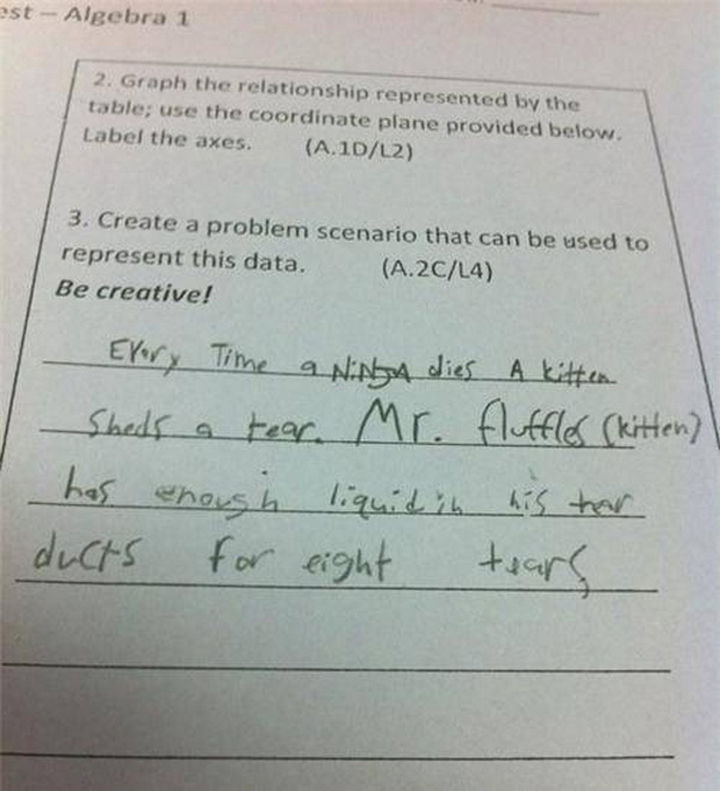 est – Algebra 1
2. Graph the relationship represented by the
table; use the coordinate plane provided below.
Label the axes. (A.1D/L2)
3. Create a problem scenario that can be used to
represent this data. (A.2C/L4)
Be creative!
Every Time a NiNJA dies A kitten
Sheds a tear. Mr. fluffles (kitten)
has enough liquid in his tear
ducts for eight tears